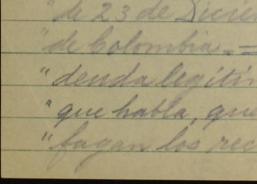 "de 23 de Dicie
"de Colombia. =
"deuda legíti
"que habla, que
"hagan los rec